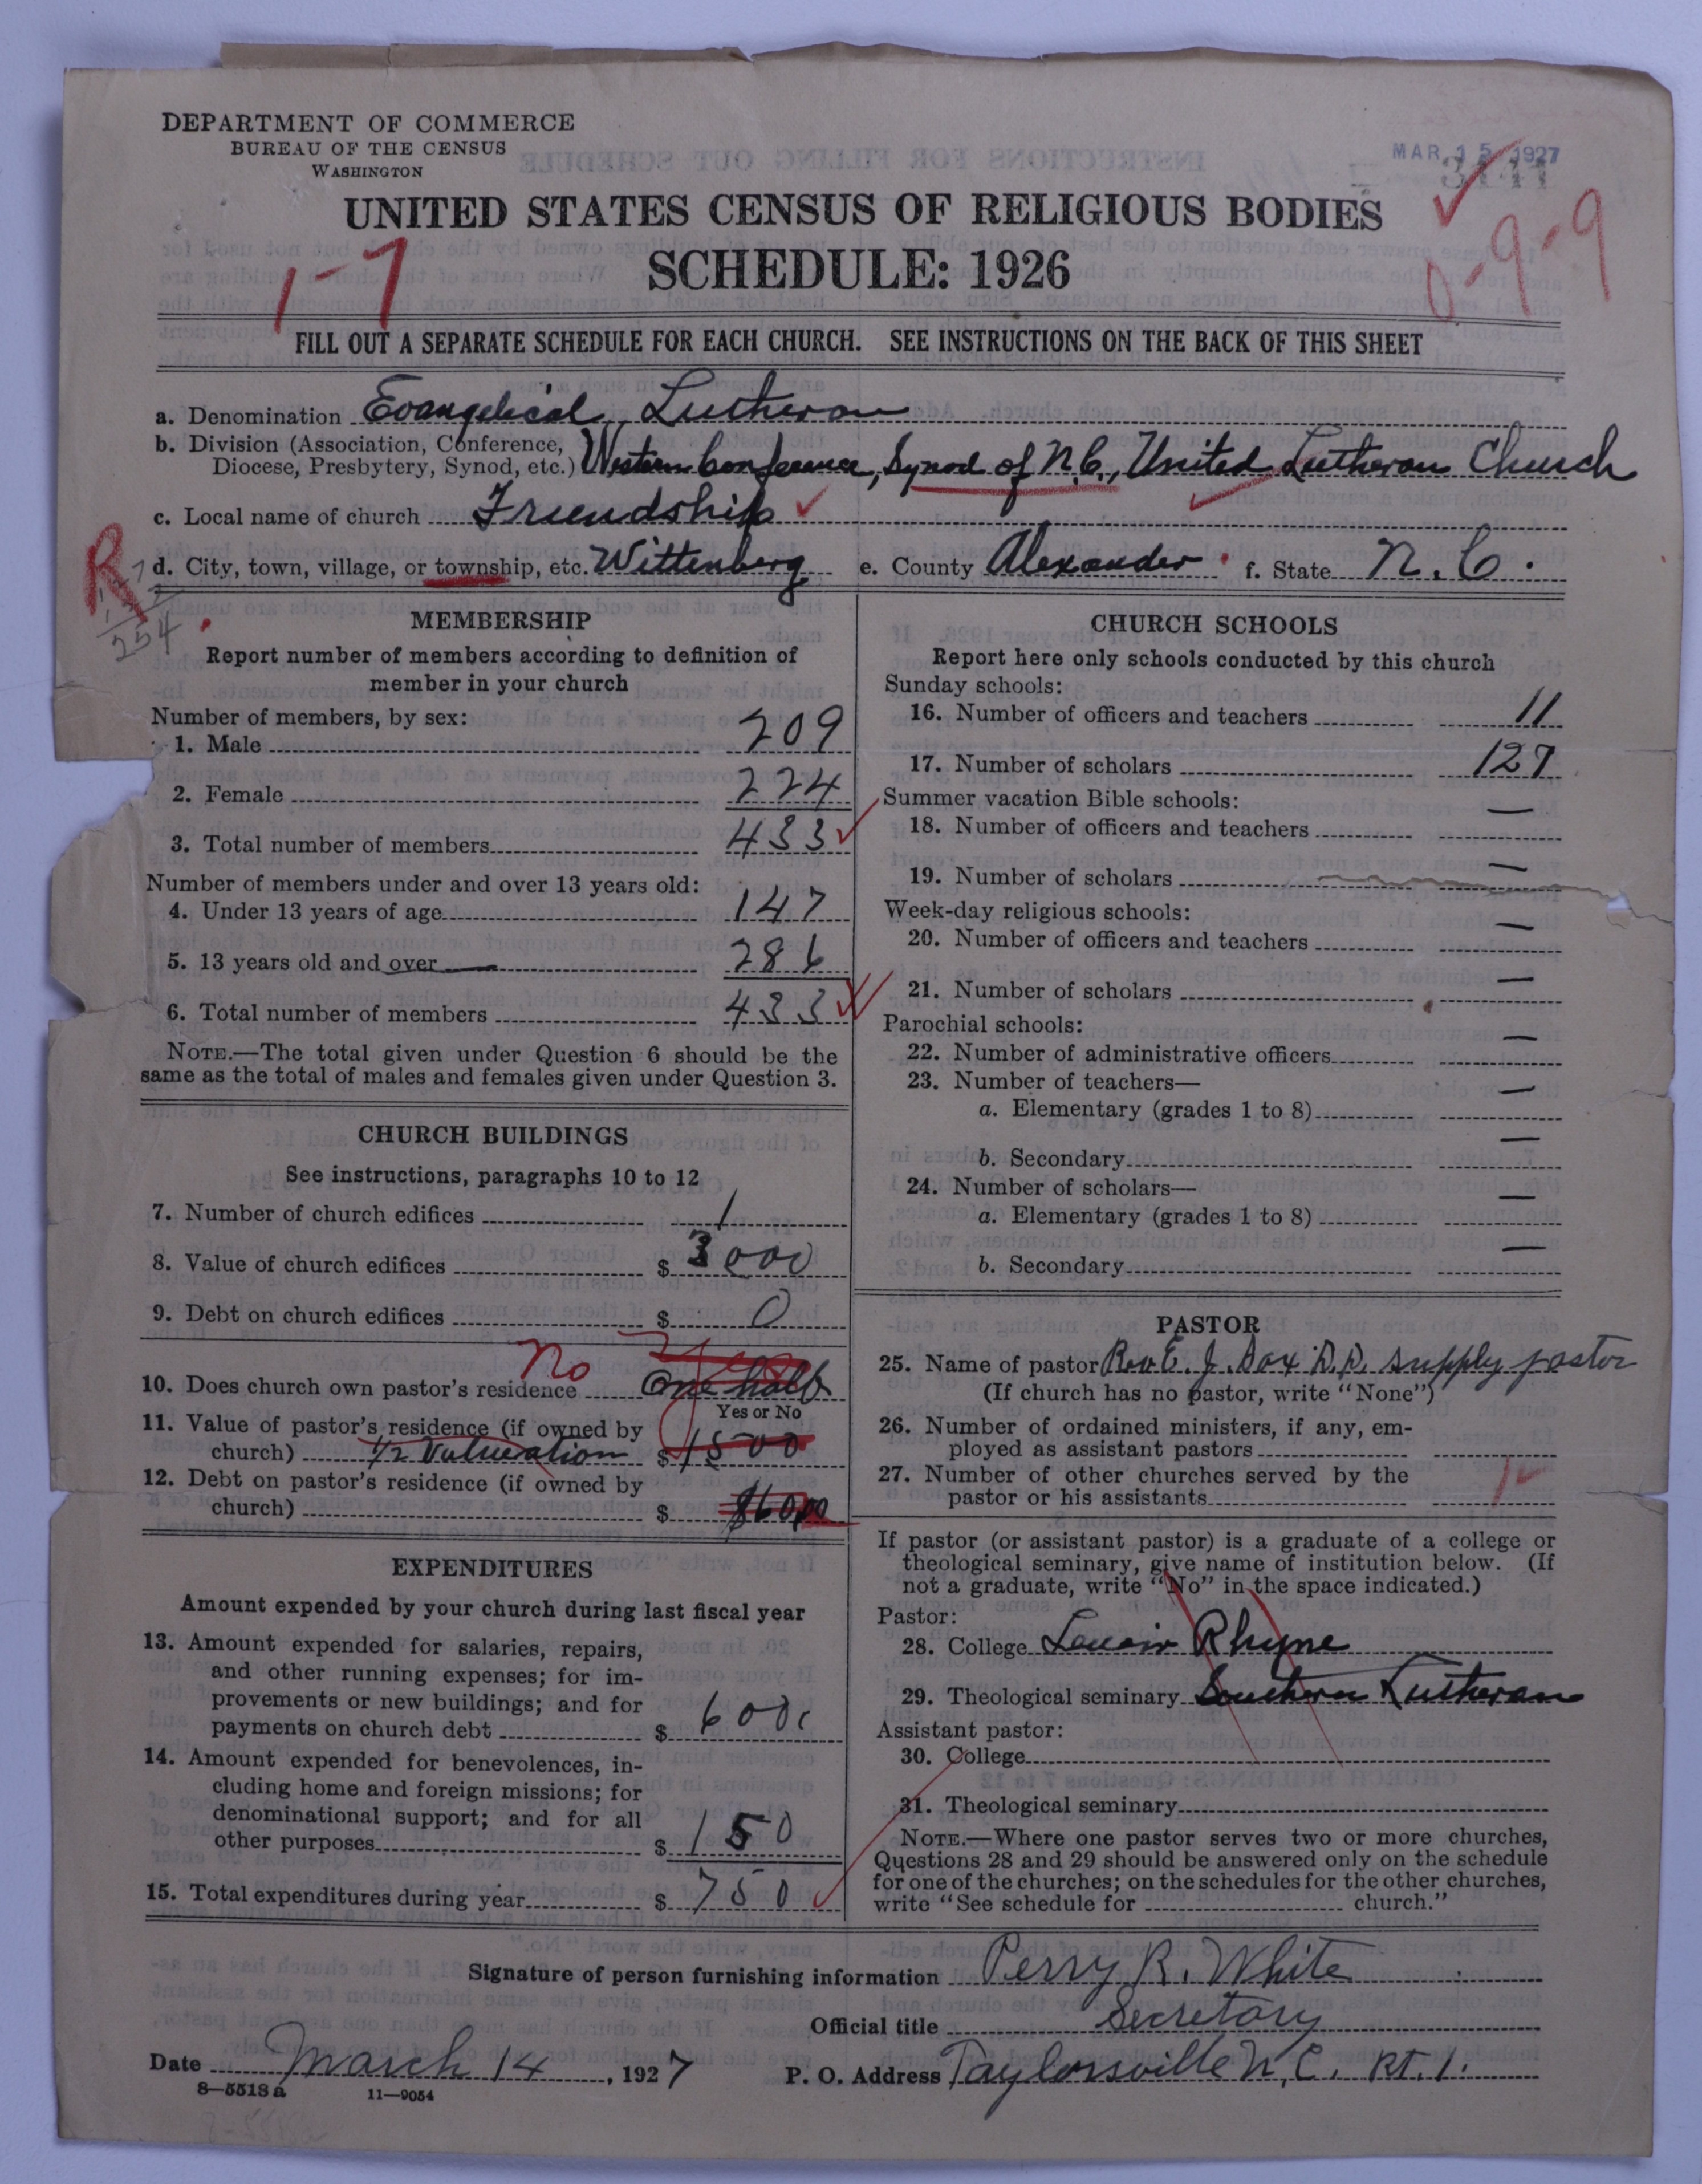 DEPARTMENT OF COMMERCE
BUREAU OF THE CENSUS
WASHINGTON
MAR 15 1927
UNITED STATES CENSUS OF RELIGIOUS BODIES
SCHEDULE: 1926
1-7
0-9-9
FILL OUT A SEPARATE SCHEDULE FOR EACH CHURCH. SEE INSTRUCTIONS ON THE BACK OF THIS SHEET
a. Denomination Evangelical Lutheran
b. Division (Association, Conference,
Diocese, Presbytery, Synod, etc.) Western Conference, Synod of N.C., United Lutheran Church
c. Local name of church Friendship
R
d. City, town, village, or township, etc. Wittenberg e. County Alexander f. State N. C.
254
MEMBERSHIP
Report number of members according to definition of
member in your church
Number of members, by sex:
1. Male 209
2. Female 224
3. Total number of members 433
Number of members under and over 13 years old:
4. Under 13 years of age 147
5. 13 years old and over 286
6. Total number of members 433
NOTE.—The total given under Question 6 should be the
same as the total of males and females given under Question 3.
CHURCH BUILDINGS
See instructions, paragraphs 10 to 12
7. Number of church edifices 1
8. Value of church edifices $ 3000
9. Debt on church edifices $ 0
No
10. Does church own pastor's residence One half
Yes or No
11. Value of pastor's residence (if owned by
church) 1/2 Valueation $ 1500
12. Debt on pastor's residence (if owned by
church) $
EXPENDITURES
Amount expended by your church during last fiscal year
13. Amount expended for salaries, repairs,
and other running expenses; for im-
provements or new buildings; and for
payments on church debt $ 600
14. Amount expended for benevolences, in-
cluding home and foreign missions; for
denominational support; and for all
other purposes $ 150
15. Total expenditures during year $ 750
CHURCH SCHOOLS
Report here only schools conducted by this church
Sunday schools:
16. Number of officers and teachers 11
17. Number of scholars 127
Summer vacation Bible schools:
18. Number of officers and teachers —
19. Number of scholars —
Week-day religious schools:
20. Number of officers and teachers —
21. Number of scholars —
Parochial schools:
22. Number of administrative officers —
23. Number of teachers—
a. Elementary (grades 1 to 8) —
b. Secondary —
24. Number of scholars—
a. Elementary (grades 1 to 8) —
b. Secondary —
PASTOR
25. Name of pastor Rev. E. J. Sox D.D. supply pastor
(If church has no pastor, write "None")
26. Number of ordained ministers, if any, em-
ployed as assistant pastors
27. Number of other churches served by the
pastor or his assistants 1
If pastor (or assistant pastor) is a graduate of a college or
theological seminary, give name of institution below. (If
not a graduate, write "No" in the space indicated.)
Pastor:
28. College Lenoir Rhyne
29. Theological seminary Southern Lutheran
Assistant pastor:
30. College
31. Theological seminary
NOTE.—Where one pastor serves two or more churches,
Questions 28 and 29 should be answered only on the schedule
for one of the churches; on the schedules for the other churches,
write "See schedule for church."
Signature of person furnishing information Perry R. White
Official title Secretary
Date March 14, 1927 P. O. Address Taylorsville N.C. Rt. 1.
8—5518 a 11—9054